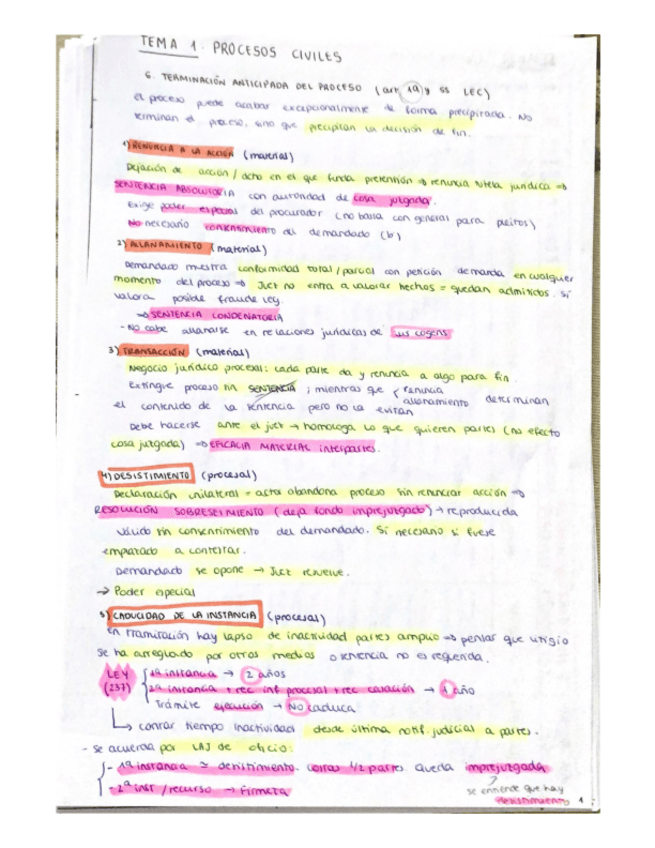 TEMA 1. PROCESOS CIVILES
6. TERMINACIÓN ANTICIPADA DEL PROCESO (art 19 y ss LEC)
el proceso puede acabar excepcionalmente de forma precipitada. No
terminan el proceso, sino que precipitan la decisión de fin.
1) RENUNCIA A LA ACCIÓN (material)
Dejación de acción / dcho en el que funda pretensión → renuncia tutela jurídica →
SENTENCIA ABSOLUTORIA con autoridad de cosa juzgada.
Exige poder especial del procurador (no basta con general para pleitos)
No necesario consentimiento del demandado (b)
2) ALLANAMIENTO (material)
Demandado muestra conformidad total/parcial con petición demanda en cualquier
momento del proceso → Juez no entra a valorar hechos = quedan admitidos. Sí
valora posible fraude ley.
→ SENTENCIA CONDENATORIA
- No cabe allanarse en relaciones jurídicas de ius cogens
3) TRANSACCIÓN (material)
Negocio jurídico procesal: cada parte da y renuncia a algo para fin.
Extingue proceso sin SENTENCIA ; mientras que { renuncia
allanamiento determinan
el contenido de la sentencia pero no la evitan
Debe hacerse ante el juez → homologa lo que quieren partes (no efecto
cosa juzgada) → EFICACIA MATERIAL interpartes.
4) DESISTIMIENTO (procesal)
Declaración unilateral = actor abandona proceso sin renunciar acción →
RESOLUCIÓN SOBRESEIMIENTO (deja fondo imprejuzgado) → reproducida
Válido sin consentimiento del demandado. Sí necesario si fuese
emplazado a contestar.
Demandado se opone → Juez resuelve.
→ Poder especial
5) CADUCIDAD DE LA INSTANCIA (procesal)
En tramitación hay lapso de inactividad partes amplio → pensar que litigio
se ha arreglado por otros medios o sentencia no es requerida.
LEY (237) { 1ª instancia → 2 años
2ª instancia + rec inf procesal + rec casación → 1 año
Trámite ejecución → No caduca
↳ contar tiempo inactividad desde última notif. judicial a partes.
- se acuerda por LAJ de oficio:
- 1ª instancia ≃ desistimiento. costas 1/2 partes. Queda imprejuzgada
- 2ª inst / recurso → Firmeza
se entiende que hay
desistimiento 1